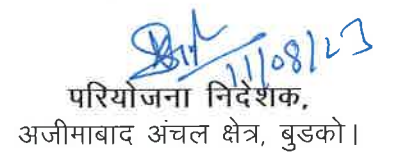 11/08/23
परियोजना निदेशक,
अजीमाबाद अंचल क्षेत्र, बुडको।